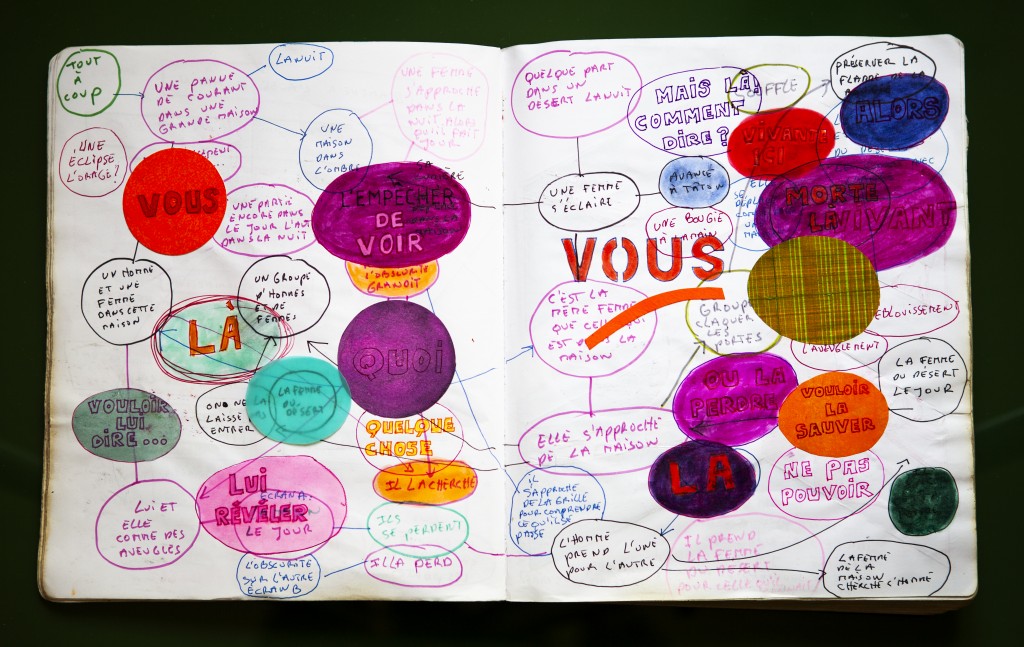 TOUT
À
COUP
UNE PANNE
DE COURANT
DANS UNE
GRANDE MAISON
LA NUIT
UNE
MAISON
DANS
L'OMBRE
UNE FEMME
S'APPROCHE
DANS LA
NUIT ALORS
QU'IL FAIT
JOUR
UNE
ECLIPSE
L'ORAGE?
VOUS
UNE PARTIE
ENCORE DANS
LE JOUR L'AUTRE
DANS LA NUIT
L'EMPÊCHER
DE
VOIR
L'OBSCURITÉ
GRANDIT
UN HOMME
ET UNE
FEMME
DANS CETTE
MAISON
UN GROUPE
D'HOMMES
ET DE
FEMMES
LÀ
QUOI
VOULOIR
LUI
DIRE...
ON NE LA
LAISSE
ENTRER
LA FEMME
DU
DÉSERT
QUELQUE
CHOSE
IL LA CHERCHE
LUI ET
ELLE
COMME DES
AVEUGLES
LUI
ECRAN A:
RÉVÉLER
LE JOUR
ILS
SE PERDENT
L'OBSCURITÉ
SUR L'AUTRE
ÉCRAN B
IL LA PERD
QUELQUE PART
DANS UN
DESERT LA NUIT
MAIS LÀ,
COMMENT
DIRE?
SOUFFLE
PRÉSERVER LA
FLAMME DE LA
ALORS
VIVANTE
ICI
UNE FEMME
S'ÉCLAIRE
AVANCE
À TÂTON
MORTE
LÀ
VIVANT
UNE BOUGIE
À LA MAIN
VOUS
C'EST LA
MÊME FEMME
QUE CELLE QUI
EST DANS LA
MAISON
GROUPE
CLAQUER
LES
PORTES
EBLOUISSEMENT
L'AVEUGLEMENT
LA FEMME
DU DÉSERT
LE JOUR
OU LA
PERDRE
VOULOIR
LA
SAUVER
ELLE S'APPROCHE
DE LA MAISON
LA
NE PAS
POUVOIR
IL
S'APPROCHE
DE LA GRILLE
POUR COMPRENDRE
CE QU'IL SE
PASSE
L'HOMME
PREND L'UNE
POUR L'AUTRE
IL PREND
LA FEMME
DU DESERT
LA FEMME
DE LA
MAISON
CHERCHE L'HOMME